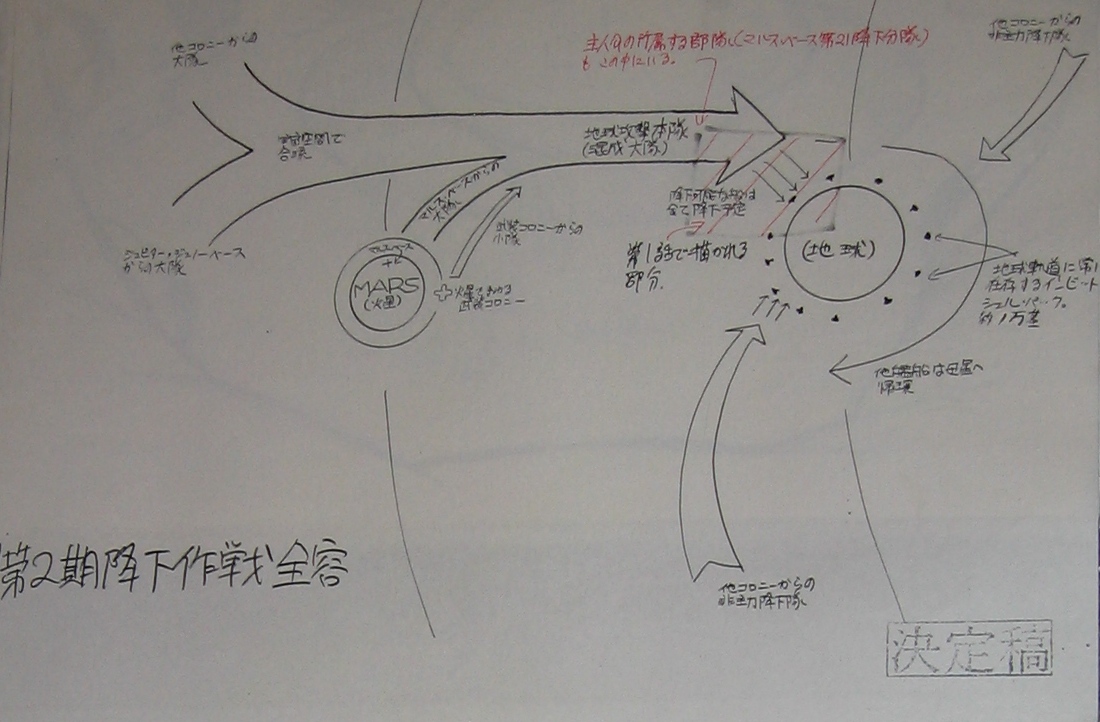 他コロニーからの
大隊
宇宙空間で
合流
ジュピター・ジュノーベース
からの大隊
主人公の所属する部隊(マルスベース第21降下分隊)
もこの中にいる。
他コロニーからの
非主力降下隊
地球攻撃本隊
(混成大隊)
マルスベースからの
大隊
武装コロニーからの
小隊
降下可能な
全て降下予定
第1話で描かれる
部分.
マルスベース
MARS
(火星)
武装コロニー
(地球)
地球軌道に常に
存在するインビット
シェル・パック。
約1万基
他艦船は母星へ
帰還
他コロニーからの
非主力降下隊
第2期降下作戦全容
決定稿